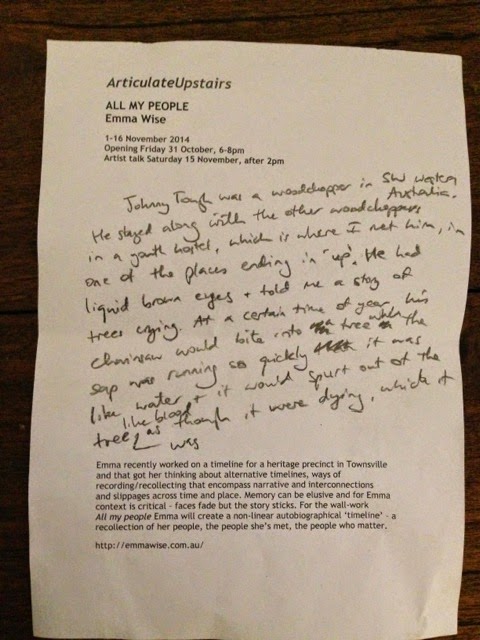 ArticulateUpstairs
ALL MY PEOPLE
Emma Wise
1-16 November 2014
Opening Friday 31 October, 6-8pm
Artist talk Saturday 15 November, after 2pm
Johnny Tough was a woodchopper in SW Western
Australia.
He stayed along with the other woodchoppers
in a youth hostel, which is where I met him, in
one of the places ending in 'up'. He had
liquid brown eyes + told me a story of
trees crying. At a certain time of year, his
chainsaw would bite into a tree when the
sap was running so quickly it was
like water + it would spurt out of the
like blood
tree, as though it were dying, which it
was
Emma recently worked on a timeline for a heritage precinct in Townsville
and that got her thinking about alternative timelines, ways of
recording/recollecting that encompass narrative and interconnections
and slippages across time and place. Memory can be elusive and for Emma
context is critical - faces fade but the story sticks. For the wall-work
All my people Emma will create a non-linear autobiographical 'timeline' - a
recollection of her people, the people she's met, the people who matter.
http://emmawise.com.au/